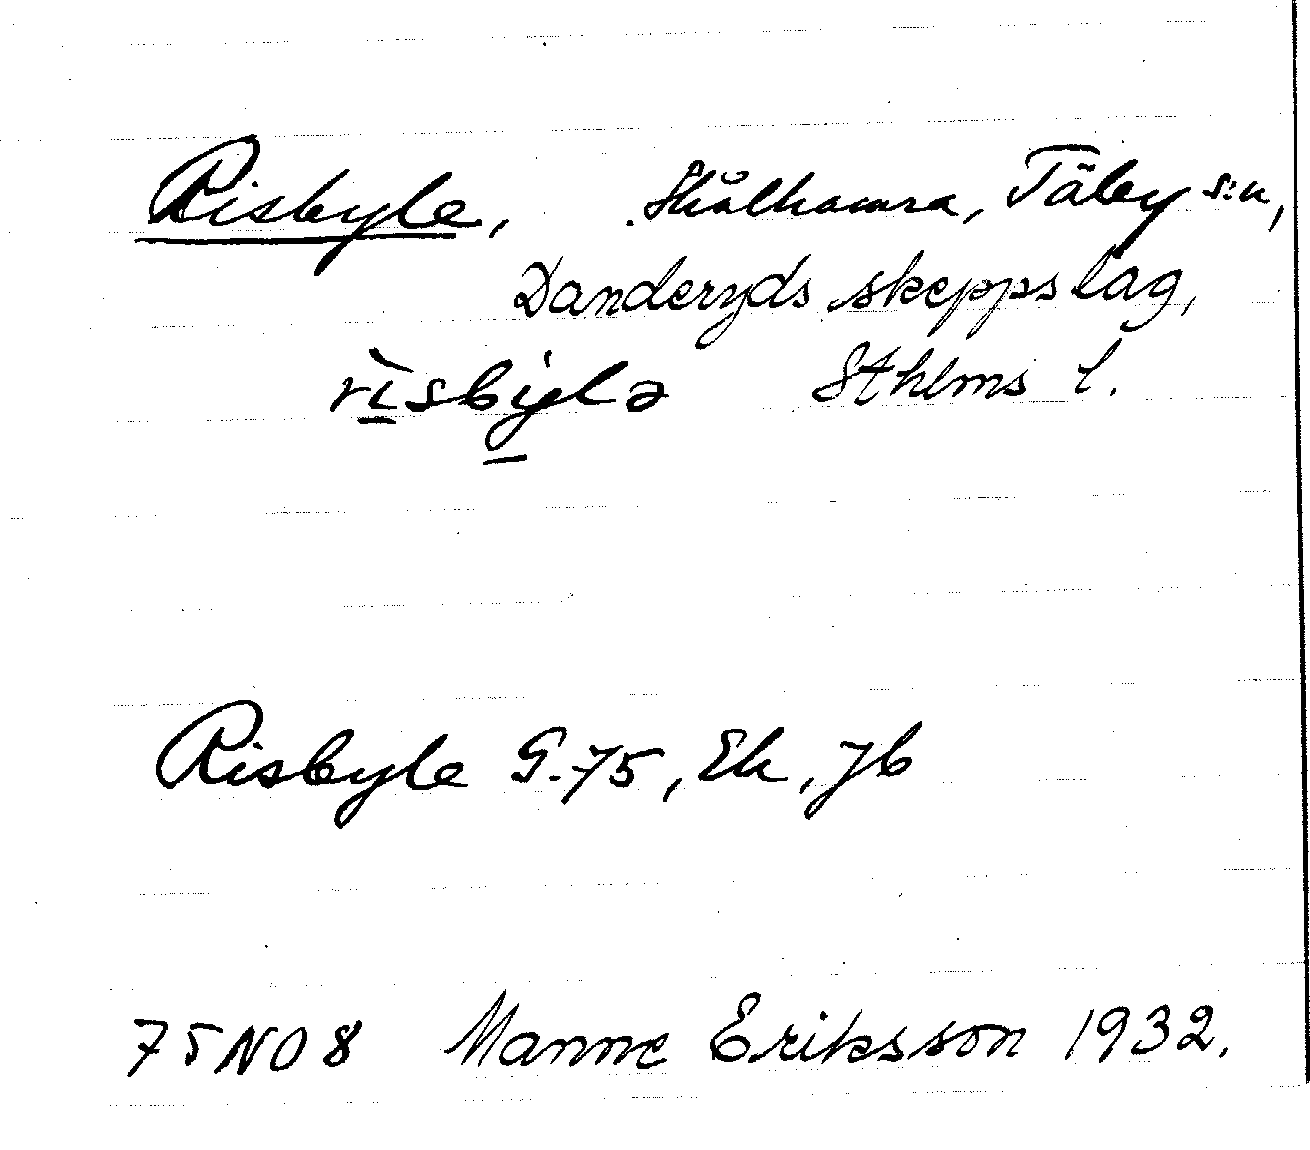 Risbyle, Skålhamra, Täby s:n,
Danderyds skeppslag,
rìsbýlə Sthlms l.
Risbyle G.75, Ek, Jb
75NO8 Manne Eriksson 1932.